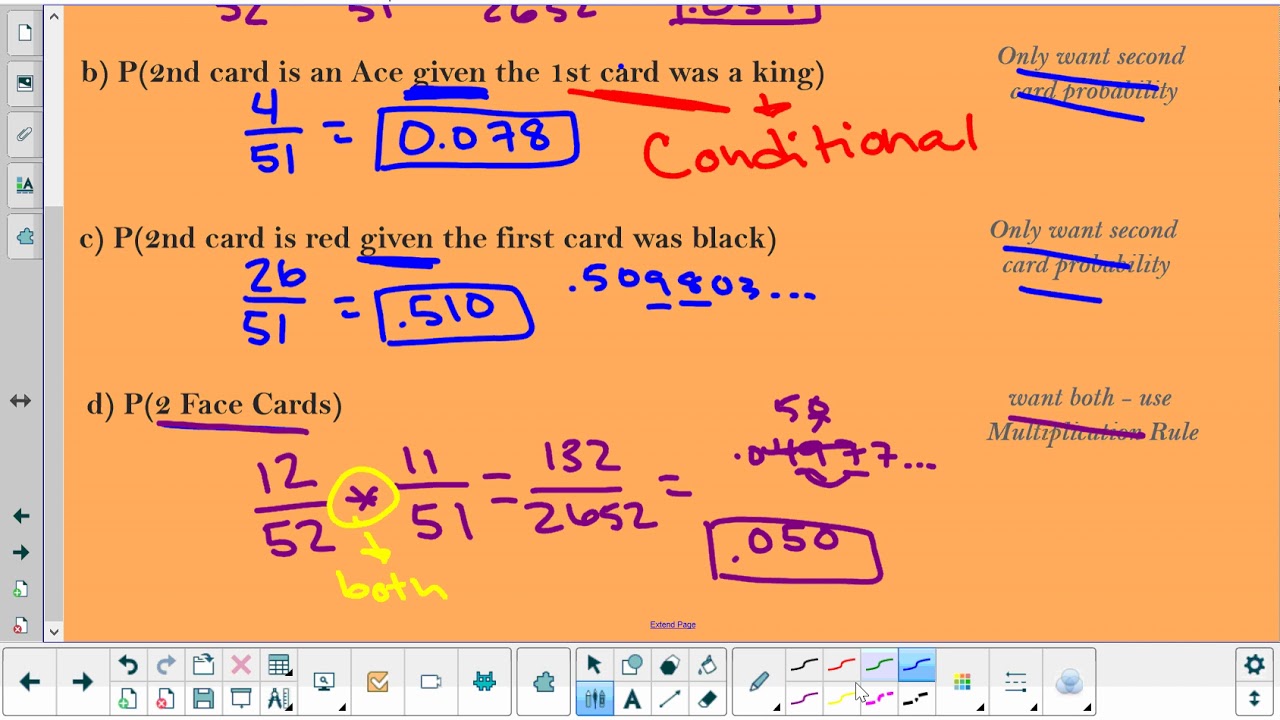 52 51 2652
b) P(2nd card is an Ace given the 1st card was a king)
Only want second
card probability
4
51
= 0.078
Conditional
c) P(2nd card is red given the first card was black)
Only want second
card probability
26
51
= .510
.509803...
d) P(2 Face Cards)
want both – use
Multiplication Rule
12
52
*
11
51
=
132
2652
=
.04977...
.050
both
Extend Page
A